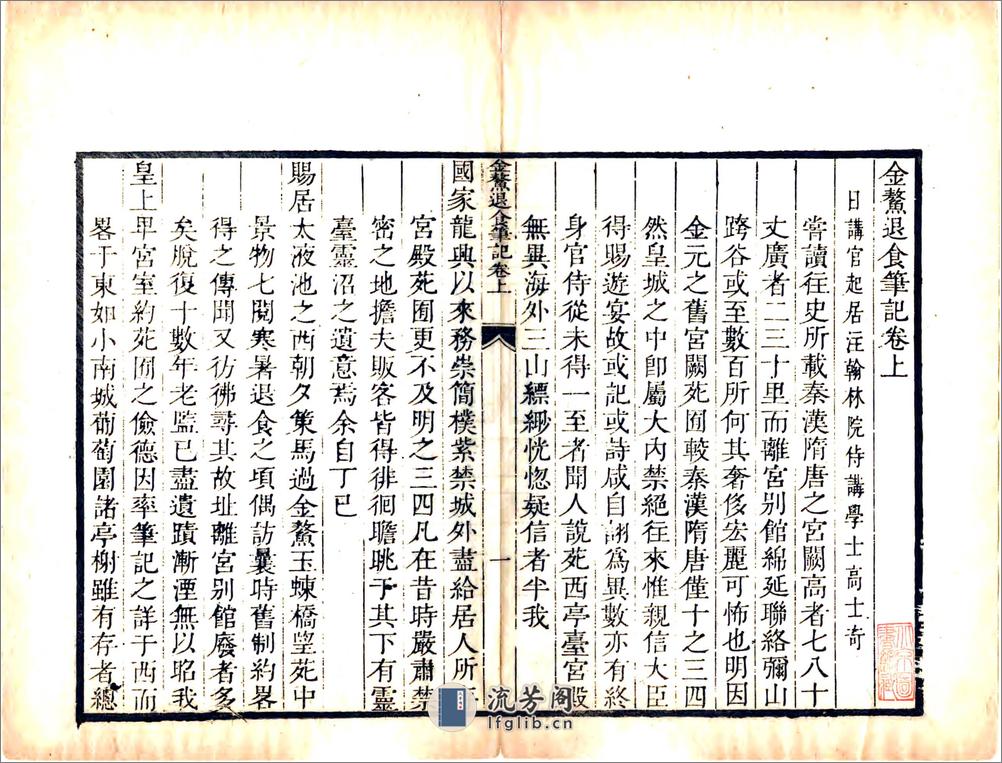 金鰲退食筆記卷上
日講官起居注翰林院侍講學士高士奇
嘗讀往史所載秦漢隋唐之宮闕高者七八十
丈廣者二三十里而離宮别館綿延聯絡彌山
跨谷或至數百所何其奢侈宏麗可怖也明因
金元之舊宮闕苑囿較秦漢隋唐僅十之三四
然皇城之中卽屬大内禁絕往來惟親信大臣
得賜遊宴故或記或詩咸自詡爲異數亦有終
身官侍從未得一至者聞人說苑西亭臺宮殿
無異海外三山縹緲恍惚疑信者半我
金鰲退食筆記卷上
一
國家龍興以來務崇簡樸紫禁城外盡給居人所
宮殿苑囿更不及明之三四凡在昔時嚴肅禁
密之地擔夫販客皆得徘徊瞻眺于其下有靈
臺靈沼之遺意焉余自丁巳
賜居太液池之西朝夕策馬過金鰲玉蝀橋望苑中
景物七閱寒暑退食之頃偶訪曩時舊制約畧
得之傳聞又彷彿尋其故址離宮别館廢者多
矣脫復十數年老監已盡遺蹟漸湮無以昭我
皇上卑宮室約苑囿之儉德因率筆記之詳于西而
畧于東如小南城葡萄園諸亭榭雖有存者總
流芳阁
lfglib.cn